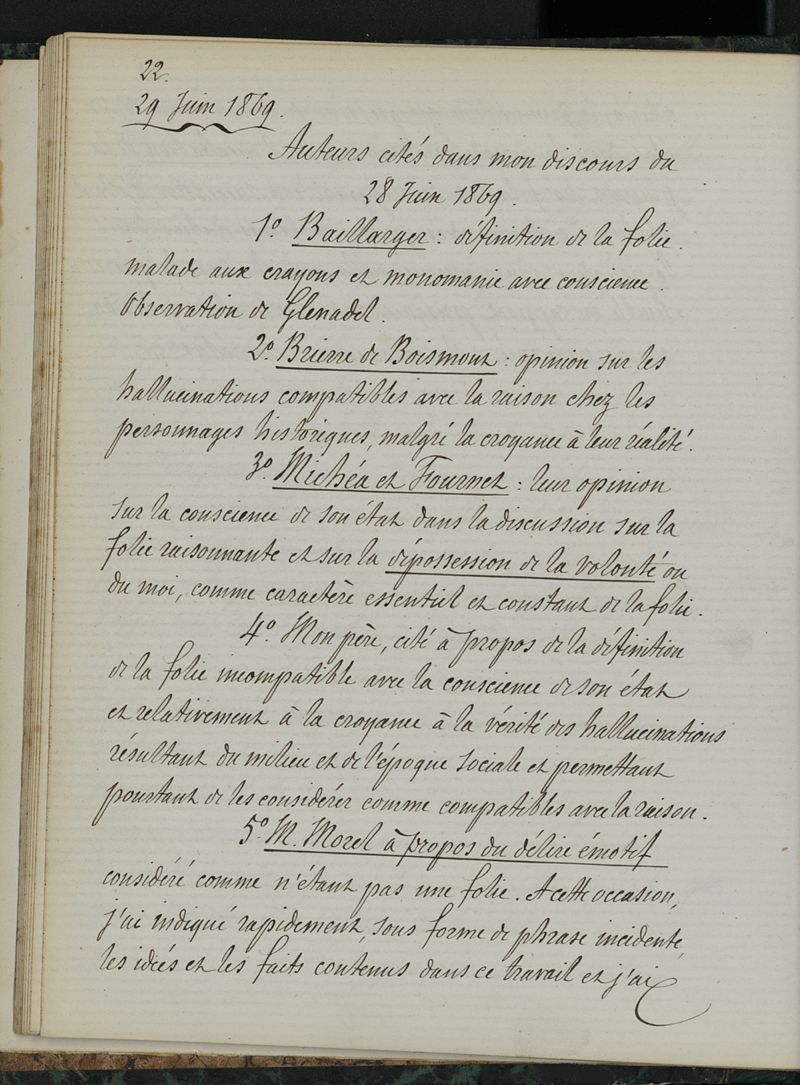 22.
29 Juin 1869.
Auteurs cités dans mon discours du
28 Juin 1869.
1º Baillarger : définition de la folie.
malade aux crayons et monomanie avec conscience.
Observation de Glenadel.
2º Brierre de Boismont : opinion sur les
hallucinations compatibles avec la raison chez les
personnages historiques, malgré la croyance à leur réalité.
3º Michéa et Fournet : leur opinion
sur la conscience de son état dans la discussion sur la
folie raisonnante et sur la dépossession de la volonté ou
du moi, comme caractère essentiel et constant de la folie.
4º Mon père, cité à propos de la définition
de la folie incompatible avec la conscience de son état
et relativement à la croyance à la vérité des hallucinations
résultant du milieu et de l'époque sociale et permettant
pourtant de les considérer comme compatibles avec la raison.
5º M. Morel à propos du délire émotif
considéré comme n'étant pas une folie. A cette occasion,
j'ai indiqué rapidement, sous forme de phrase incidente,
les idées et les faits contenus dans ce travail et j'ai